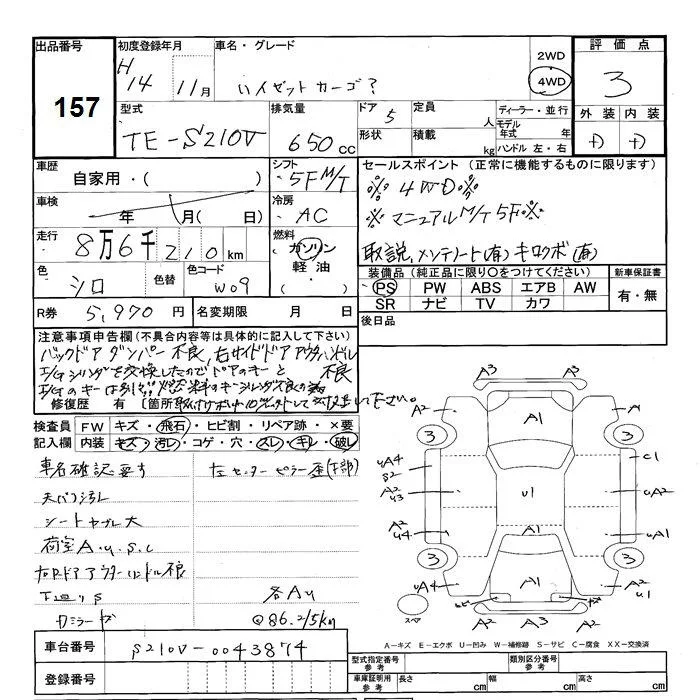 出品番号 初度登録年月 車名・グレード 評価点
157
H14 11月 ハイゼットカーゴ? 2WD 4WD 3
型式 排気量 ドア 5 定員 人 ディーラー・並行 外装 内装
TE-S210V 650cc 形状 積載 kg モデル年式 年 ハンドル 左・右
車歴 自家用・( ) シフト 5F M/T セールスポイント (正常に機能するものに限ります)
車検 年 月( 日) 冷房 AC ※4WD※
※マニュアルM/T 5F※
走行 8万6千210km 燃料 ガソリン 軽油 ・( ) 取説,メンテノート(有) キロクボ(有)
色 シロ 色替 色コード W09 装備品 (純正品に限り○をつけてください) 新車保証書
PS PW ABS エアB AW 有・無
SR ナビ TV カワ
R券 5,970円 名変期限 月 日 後日品
注意事項申告欄 (不具合内容等は具体的に記入して下さい)
バックドアダンパー不良,右サイドドアアウタハンドル
I/Gシリンダを交換したのでドアのキーと 不良
修復歴 有 [箇所
検査員 FW キズ・飛石・ヒビ割・リペア跡・×要
記入欄 内装 キズ・汚レ・コゲ・穴・スレ・キレ・破レ
車名確認要す 左センターピラー
天バリ汚レ
荷室A.U.S.C
下廻りS 各AU
@86.215km
車台番号 S210V-0043874
登録番号
A3 A3
A2 A1 A
3 3
UA4 S2 C1
A2 U3 U1 UA2
A2 U4 A1 UA1
3 3
UA4 A1 A2 U1
A2 A2
スペア
A-キズ E-エクボ U-凹み W-補修跡 S-サビ C-腐食 XX-交換済
型式指定番号 参考 類別区分番号 参考
車庫証明用 参考 長さ cm 幅 cm 高さ cm